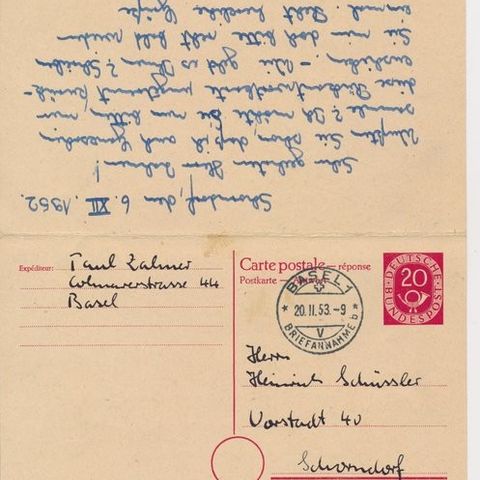 Schorndorf, den 6. XII. 1952.
Sehr geehrter Herr Zahner!
Wußten Sie schon, daß ich auch Ganzsachen
sammle? Ich möchte Sie nun bitten, mir
diese zurück-
zusenden. – Wie geht es Ihnen? Schreiben
Sie mir doch bitte recht bald wieder
einmal. Recht herzliche Grüße
Expéditeur:
Paul Zahner
Colmarerstrasse 44
Basel
Carte postale – réponse
Postkarte – Antwort
BASEL 1
20.II.53.-9
V
BRIEFANNAHME b
DEUTSCHE
20
BUNDESPOST
Herrn
Heinrich Schüssler
Vorstadt 40
Schorndorf